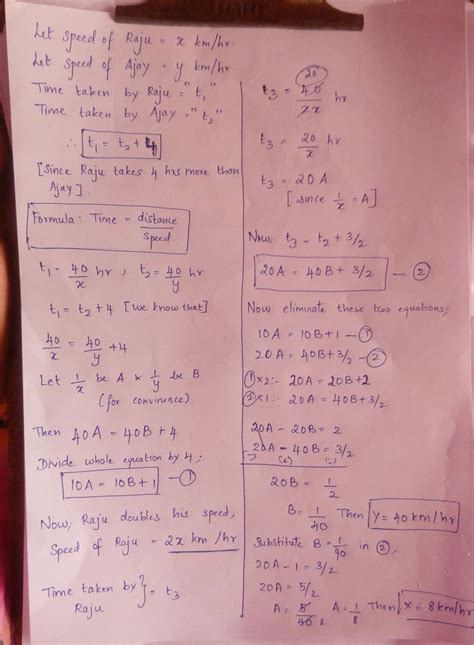 Let speed of Raju = x km/hr.
Let speed of Ajay = y km/hr.
Time taken by Raju = "t₁"
Time taken by Ajay = "t₂"
∴ t₁ = t₂ + 4
[Since Raju takes 4 hrs more than
Ajay].
Formula: Time = distance/speed
t₁ = 40/x hr, t₂ = 40/y hr
t₁ = t₂ + 4 [We know that]
40/x = 40/y + 4
Let 1/x be A & 1/y be B
(for convinence).
Then 40A = 40B + 4
Divide whole equation by 4;
10A = 10B + 1 — ①
Now; Raju doubles his speed,
Speed of Raju = 2x km/hr
Time taken by Raju } = t₃
20
t₃ = 40/2x hr
t₃ = 20/x hr
t₃ = 20A
[since 1/x = A]
Now, t₃ = t₂ + 3/2
20A = 40B + 3/2 — ②
Now eliminate these two equations;
10A = 10B + 1 — ①
20A = 40B + 3/2 — ②
①×2:- 20A = 20B + 2
②×1:- 20A = 40B + 3/2
20A - 20B = 2
20A - 40B = 3/2
(-) (+) (-)
20B = 1/2
B = 1/40 Then y = 40 km/hr
Substitute B = 1/40 in ②,
20A - 1 = 3/2
20A = 5/2
A = 5/40 8 A = 1/8 Then x = 8 km/hr